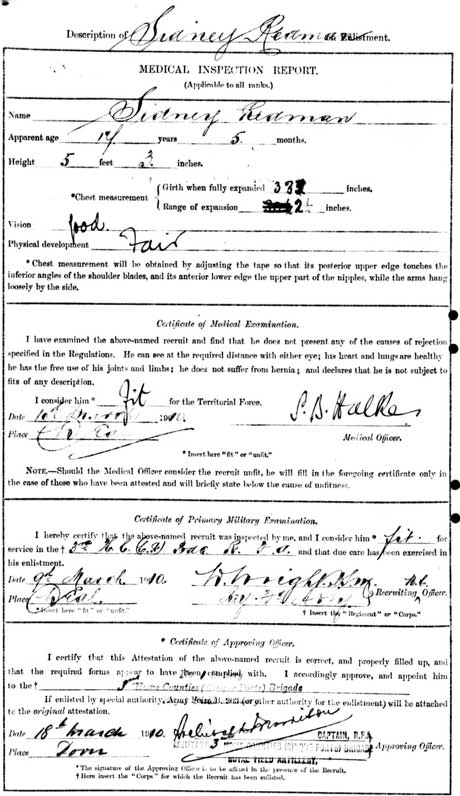 Description of Sidney Redman on Enlistment.
MEDICAL INSPECTION REPORT.
(Applicable to all ranks.)
Name Sidney Redman
Apparent age 17 years 5 months.
Height 5 feet 3 inches.
*Chest measurement { Girth when fully expanded 33 inches.
Range of expansion 2 inches.
Vision Good.
Physical development Fair
* Chest measurement will be obtained by adjusting the tape so that its posterior upper edge touches the
inferior angles of the shoulder blades, and its anterior lower edge the upper part of the nipples, while the arms hang
loosely by the side.
Certificate of Medical Examination.
I have examined the above-named recruit and find that he does not present any of the causes of rejection
specified in the Regulations. He can see at the required distance with either eye; his heart and lungs are healthy
he has the free use of his joints and limbs; he does not suffer from hernia; and declares that he is not subject to
fits of any description.
I consider him * fit for the Territorial Force.
Date March 1910. S. B. Halke
Place Medical Officer.
* Insert here "fit" or "unfit."
NOTE.—Should the Medical Officer consider the recruit unfit, he will fill in the foregoing certificate only in
the case of those who have been attested and will briefly state below the cause of unfitness.
Certificate of Primary Military Examination.
I hereby certify that the above-named recruit was inspected by me, and I consider him * fit for
service in the † 3rd H.C. Bde R.F.A. and that due care has been exercised in
his enlistment.
Date 9th March 1910. W. Wright
Place Deal Recruiting Officer.
* Insert here "fit" or "unfit." † Insert the "Regiment" or "Corps."
* Certificate of Approving Officer.
I certify that this Attestation of the above-named recruit is correct, and properly filled up, and
that the required forms appear to have been complied with. I accordingly approve, and appoint him
to the † 3 Home Counties (Cinque Ports) Brigade
If enlisted by special authority, Army Form B. (or other authority for the enlistment) will be attached
to the original attestation.
Date 18th March 1910. CAPTAIN, R.F.A.
Place Dover 3 HOME COUNTIES (CINQUE PORTS) BRIGADE Approving Officer.
ROYAL FIELD ARTILLERY.
* The signature of the Approving Officer is to be affixed in the presence of the Recruit.
† Here insert the "Corps" for which the Recruit has been enlisted.